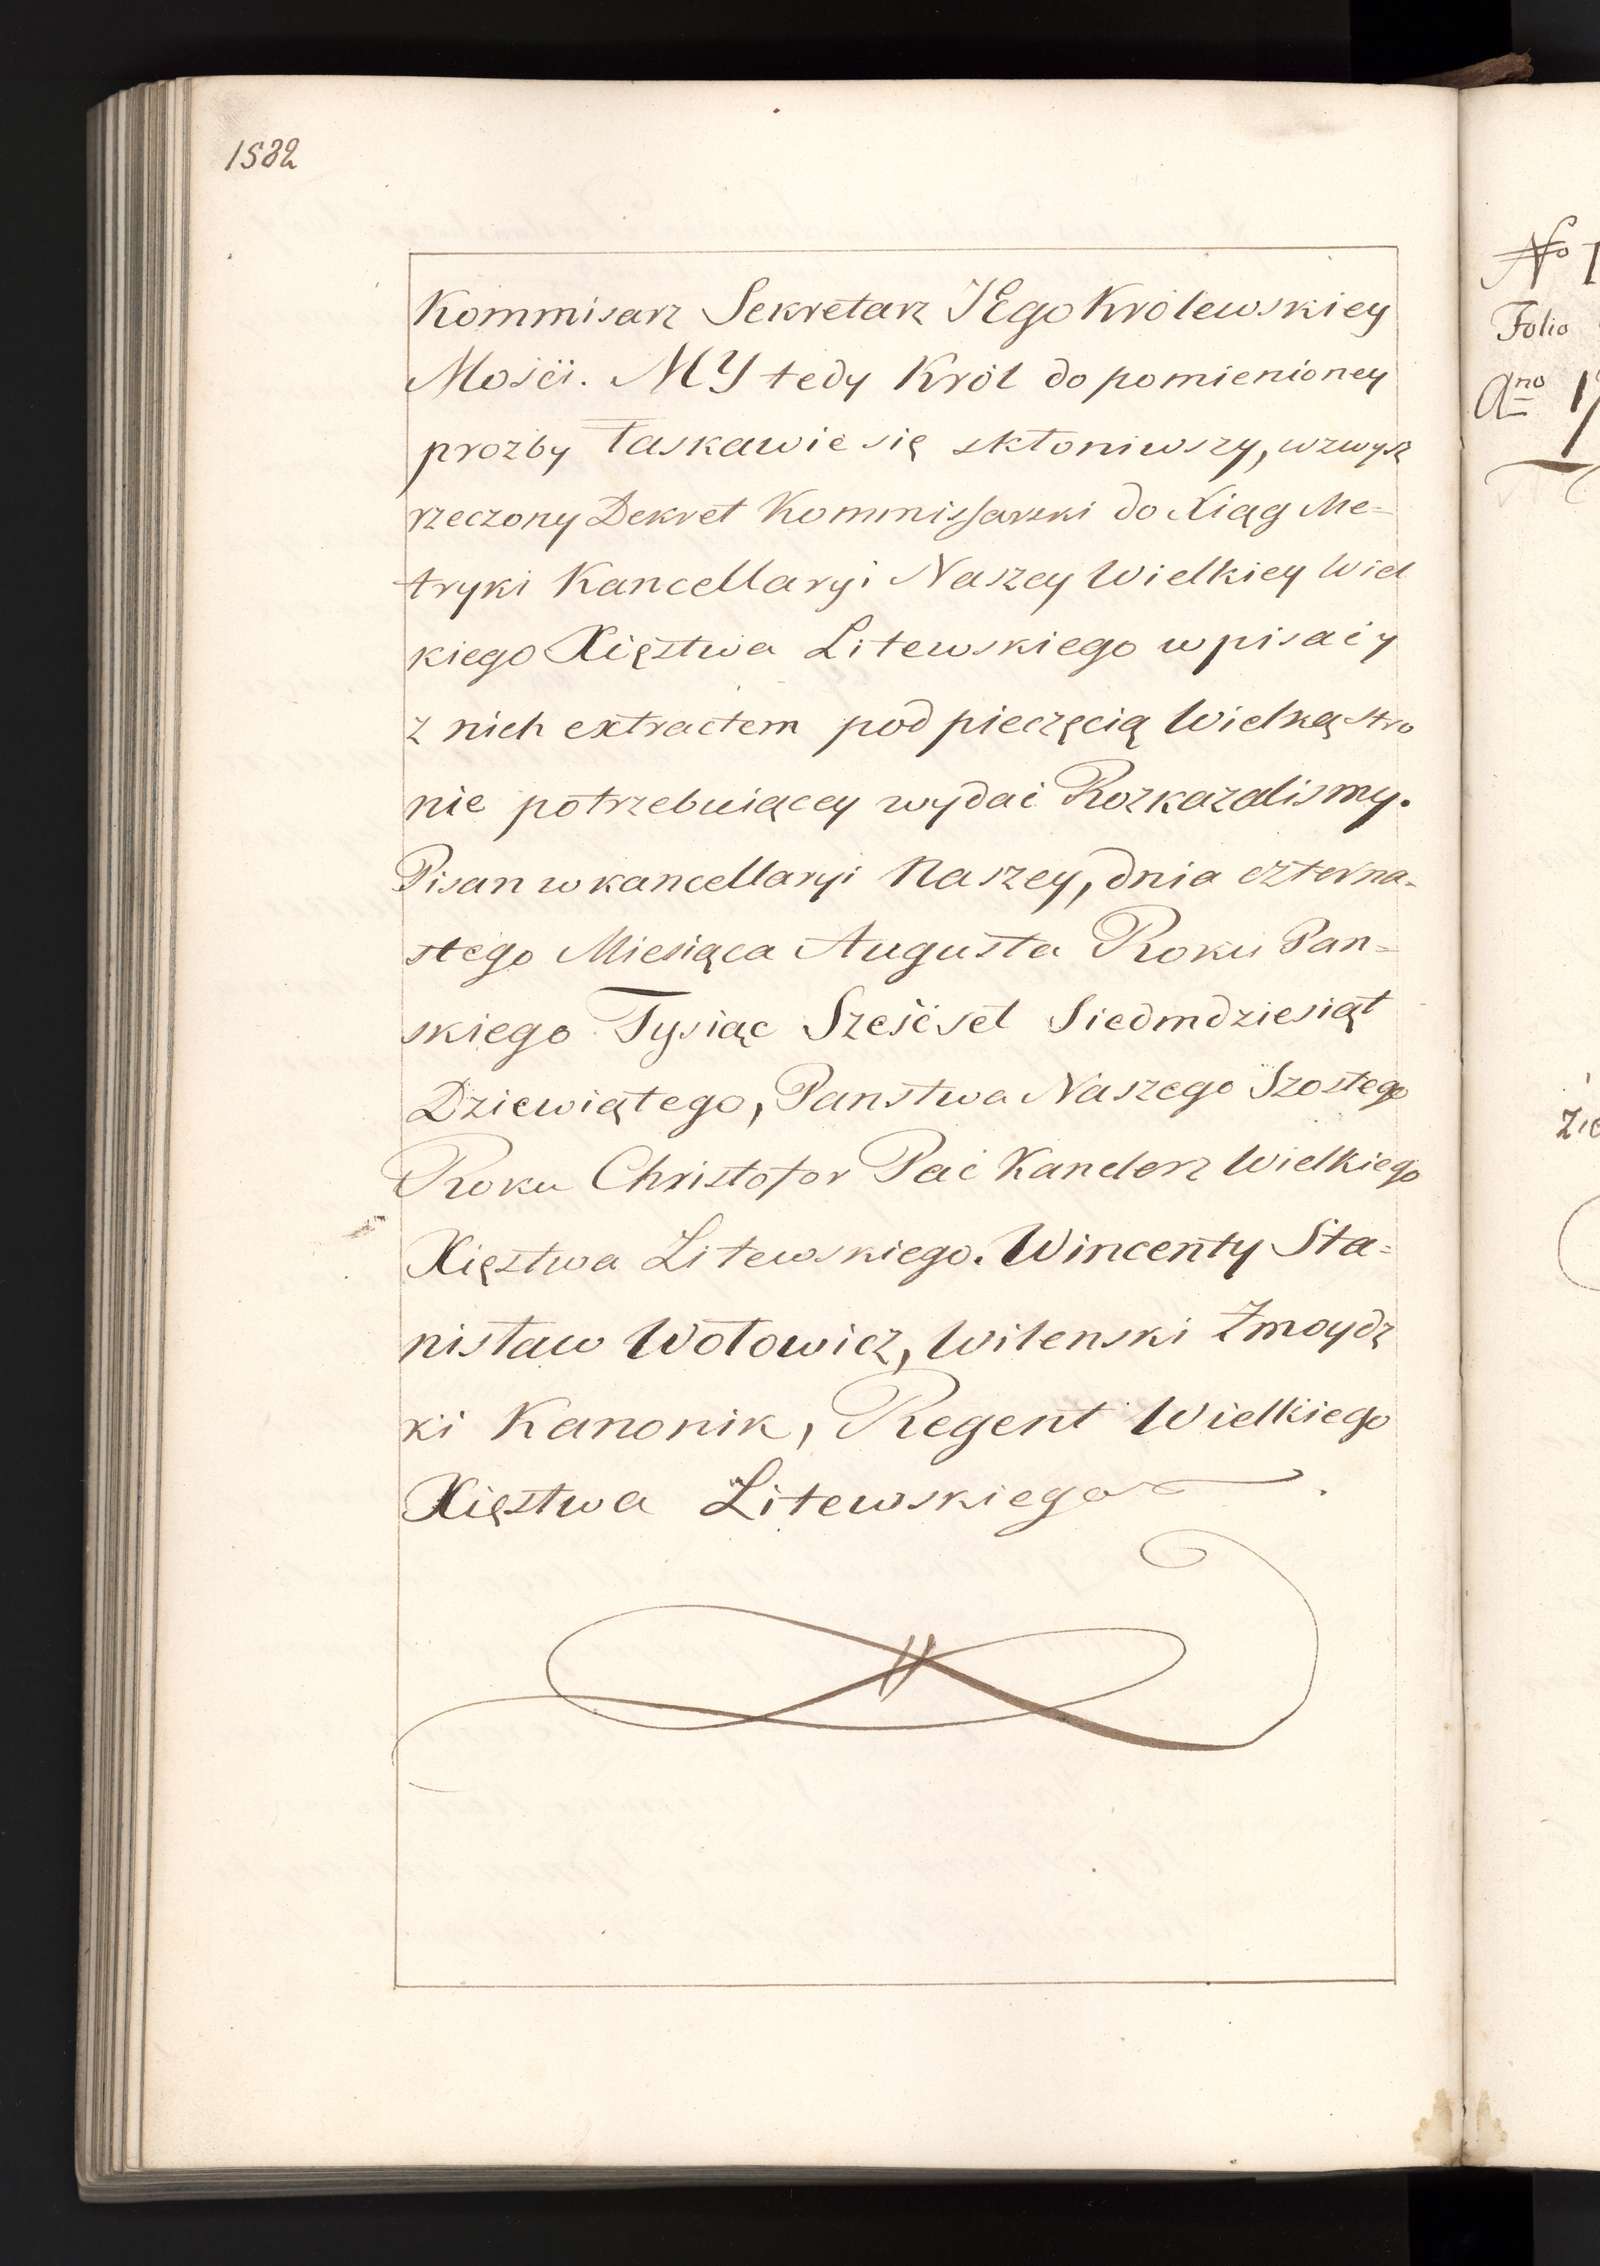 1532
Kommisarz Sekretarz JEgo Królewskiey
Mości. MY tedy Król do pomienioney
prozby łaskawie się skłoniwszy, wzwysz
rzeczony Dekret Kommissarski do Xiąg Me=
tryki Kancellaryi Naszey Wielkiey Wiel
kiego Xięztwa Litewskiego wpisać y
z nich extractem pod pieczęcią Wielką stro
nie potrzebuiącey wydać Rozkazalismy.
Pisan w kancellaryi Naszey, dnia czterna-
stego Miesiąca Augusta Roku Pan=
skiego Tysiąc Sześćset Siedmdziesiąt
Dziewiątego, Panstwa Naszego Szostego
Roku Christofor Pać Kanclerz Wielkiego
Xięztwa Litewskiego. Wincenty Sta=
nisław Wołowicz, Wilenski Zmoydz
ki Kanonik, Regent Wielkiego
Xięztwa Litewskiego.
No 1
Folio
Ano 1